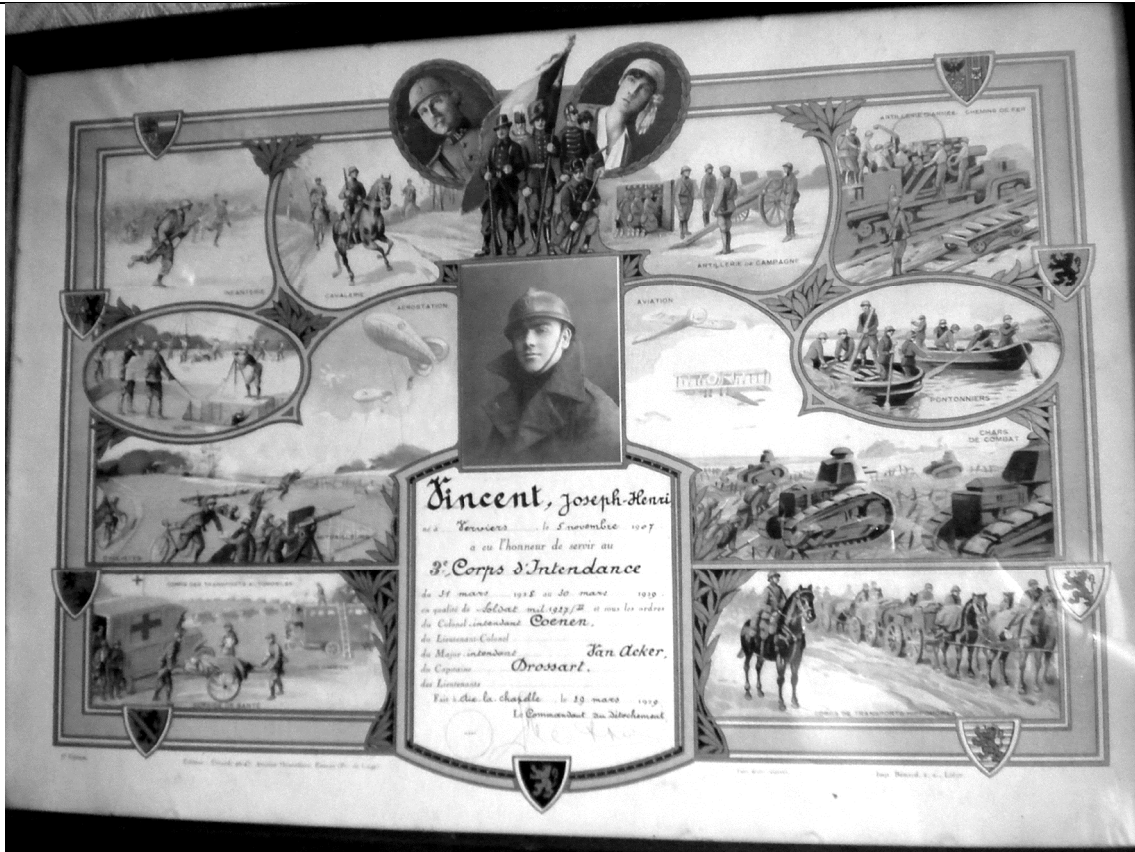 ARTILLERIE CHEMINS DE FER
INFANTERIE
CAVALERIE
ARTILLERIE DE CAMPAGNE
AÉROSTATION
AVIATION
GÉNIE
PONTONNIERS
CHARS
DE COMBAT
CYCLISTES
CORPS DES TRANSPORTS
DE SANTÉ
Vincent, Joseph-Henri
né à Verviers le 5 novembre 1907
a eu l'honneur de servir au
3e Corps d'Intendance
du 31 mars 1928 au 30 mars 1929
en qualité de Soldat mil. 1927/ et sous les ordres
du Colonel intendant Coenen.
du Lieutenant-Colonel
du Major intendant Van Acker,
du Capitaine Brossart.
des Lieutenants
Fait à Aix la chapelle, le 29 mars 1929
Le Commandant du détachement
Imp. Bénard, s. a., Liége